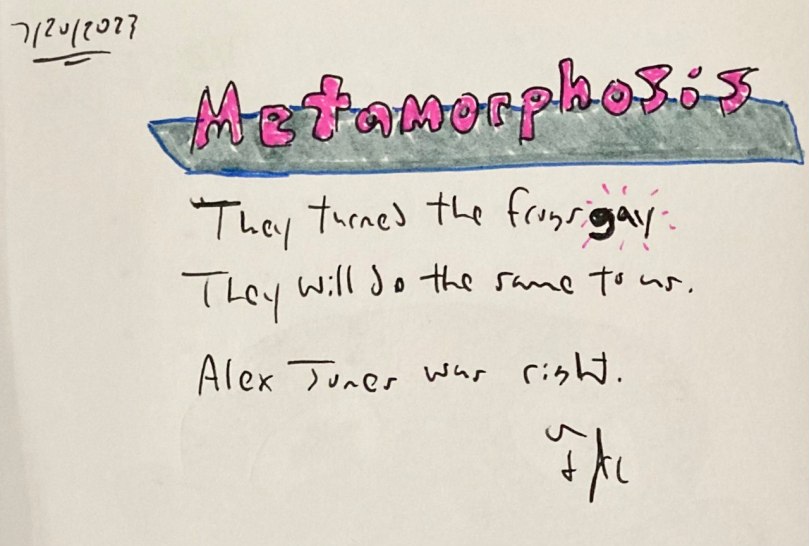 7/20/2023
Metamorphosis
They turned the frogs gay.
They will do the same to us.
Alex Jones was right.